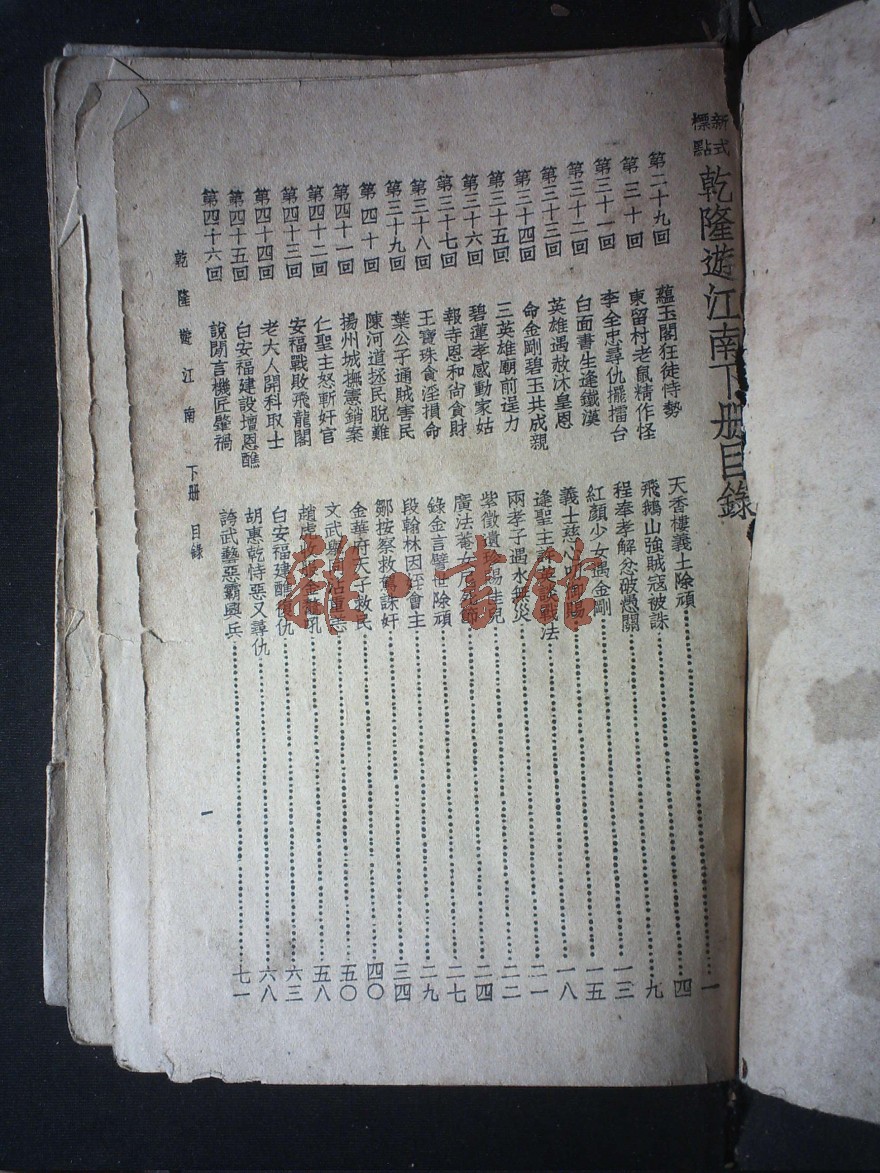 新式標點
乾隆遊江南下册目錄
第二十九回 蘊玉閣狂徒恃勢 天香樓義士除頑 一
第三十回 東留村老鼠精作怪 飛鵝山強賊寇被誅 四
第三十一回 李全忠尋仇擺擂台 程奉孝解忿破愚關 九
第三十二回 白面書生逢鐵漢 紅顏少女遇金剛 一三
第三十三回 英雄遇赦沐皇恩 義士慈心叨 賜 一五
第三十四回 命金剛碧玉共成親 逢聖主 戰法 一八
第三十五回 三英雄廟前逞力 兩孝子遇水無災 二一
第三十六回 碧蓮孝感動家姑 紫微遺 兒 二二
第三十七回 報寺恩和尚貪財 廣法 二四
第三十八回 王寶珠貪淫損命 錄金言警世除頑 二七
第三十九回 葉公子通賊害民 段翰林因姪會主 二九
第四十回 陳河道拯民脫難 鄒按察救駕誅奸 三四
第四十一回 揚州城撫憲銷案 金華府天子救民 四〇
第四十二回 仁聖主怒斬奸官 文武舉 沾重 五〇
第四十三回 安福戰敗飛龍閣 趙虎 金鰲吼 五八
第四十四回 老大人開科取士 白安福建醮復仇 六三
第四十五回 白安福建設壇恩醮 胡惠乾恃惡又尋仇 六八
第四十六回 說閒言機匠肇禍 誇武藝惡霸興兵 七一
乾隆遊江南 下册 目錄 一
雜·書館